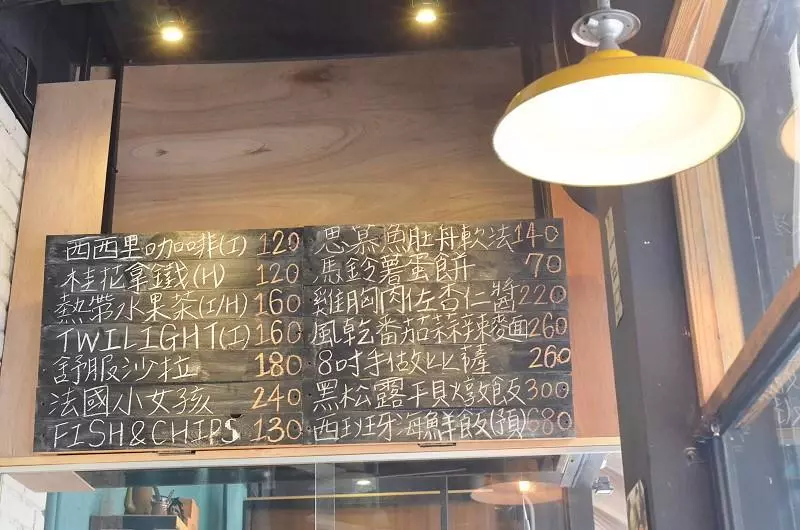 西西里咖啡(I) 120
桂花拿鐵(H) 120
熱帶水果茶(I/H) 160
TWILIGHT(I) 160
舒服沙拉 180
法國小女孩 240
FISH&CHIPS 130
思慕魚肚舟軟法 140
馬鈴薯蛋餅 70
雞胸肉佐杏仁醬 220
風乾番茄蒜辣麵 260
8吋手做比薩 260
黑松露干貝燉飯 300
西班牙海鮮飯(預) 680